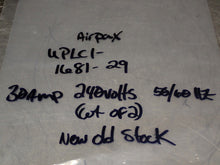 Airpax
UPLC1-
1681-29
30Amp 240Volts 50/60 HZ
(Lot of 2)
New old Stock